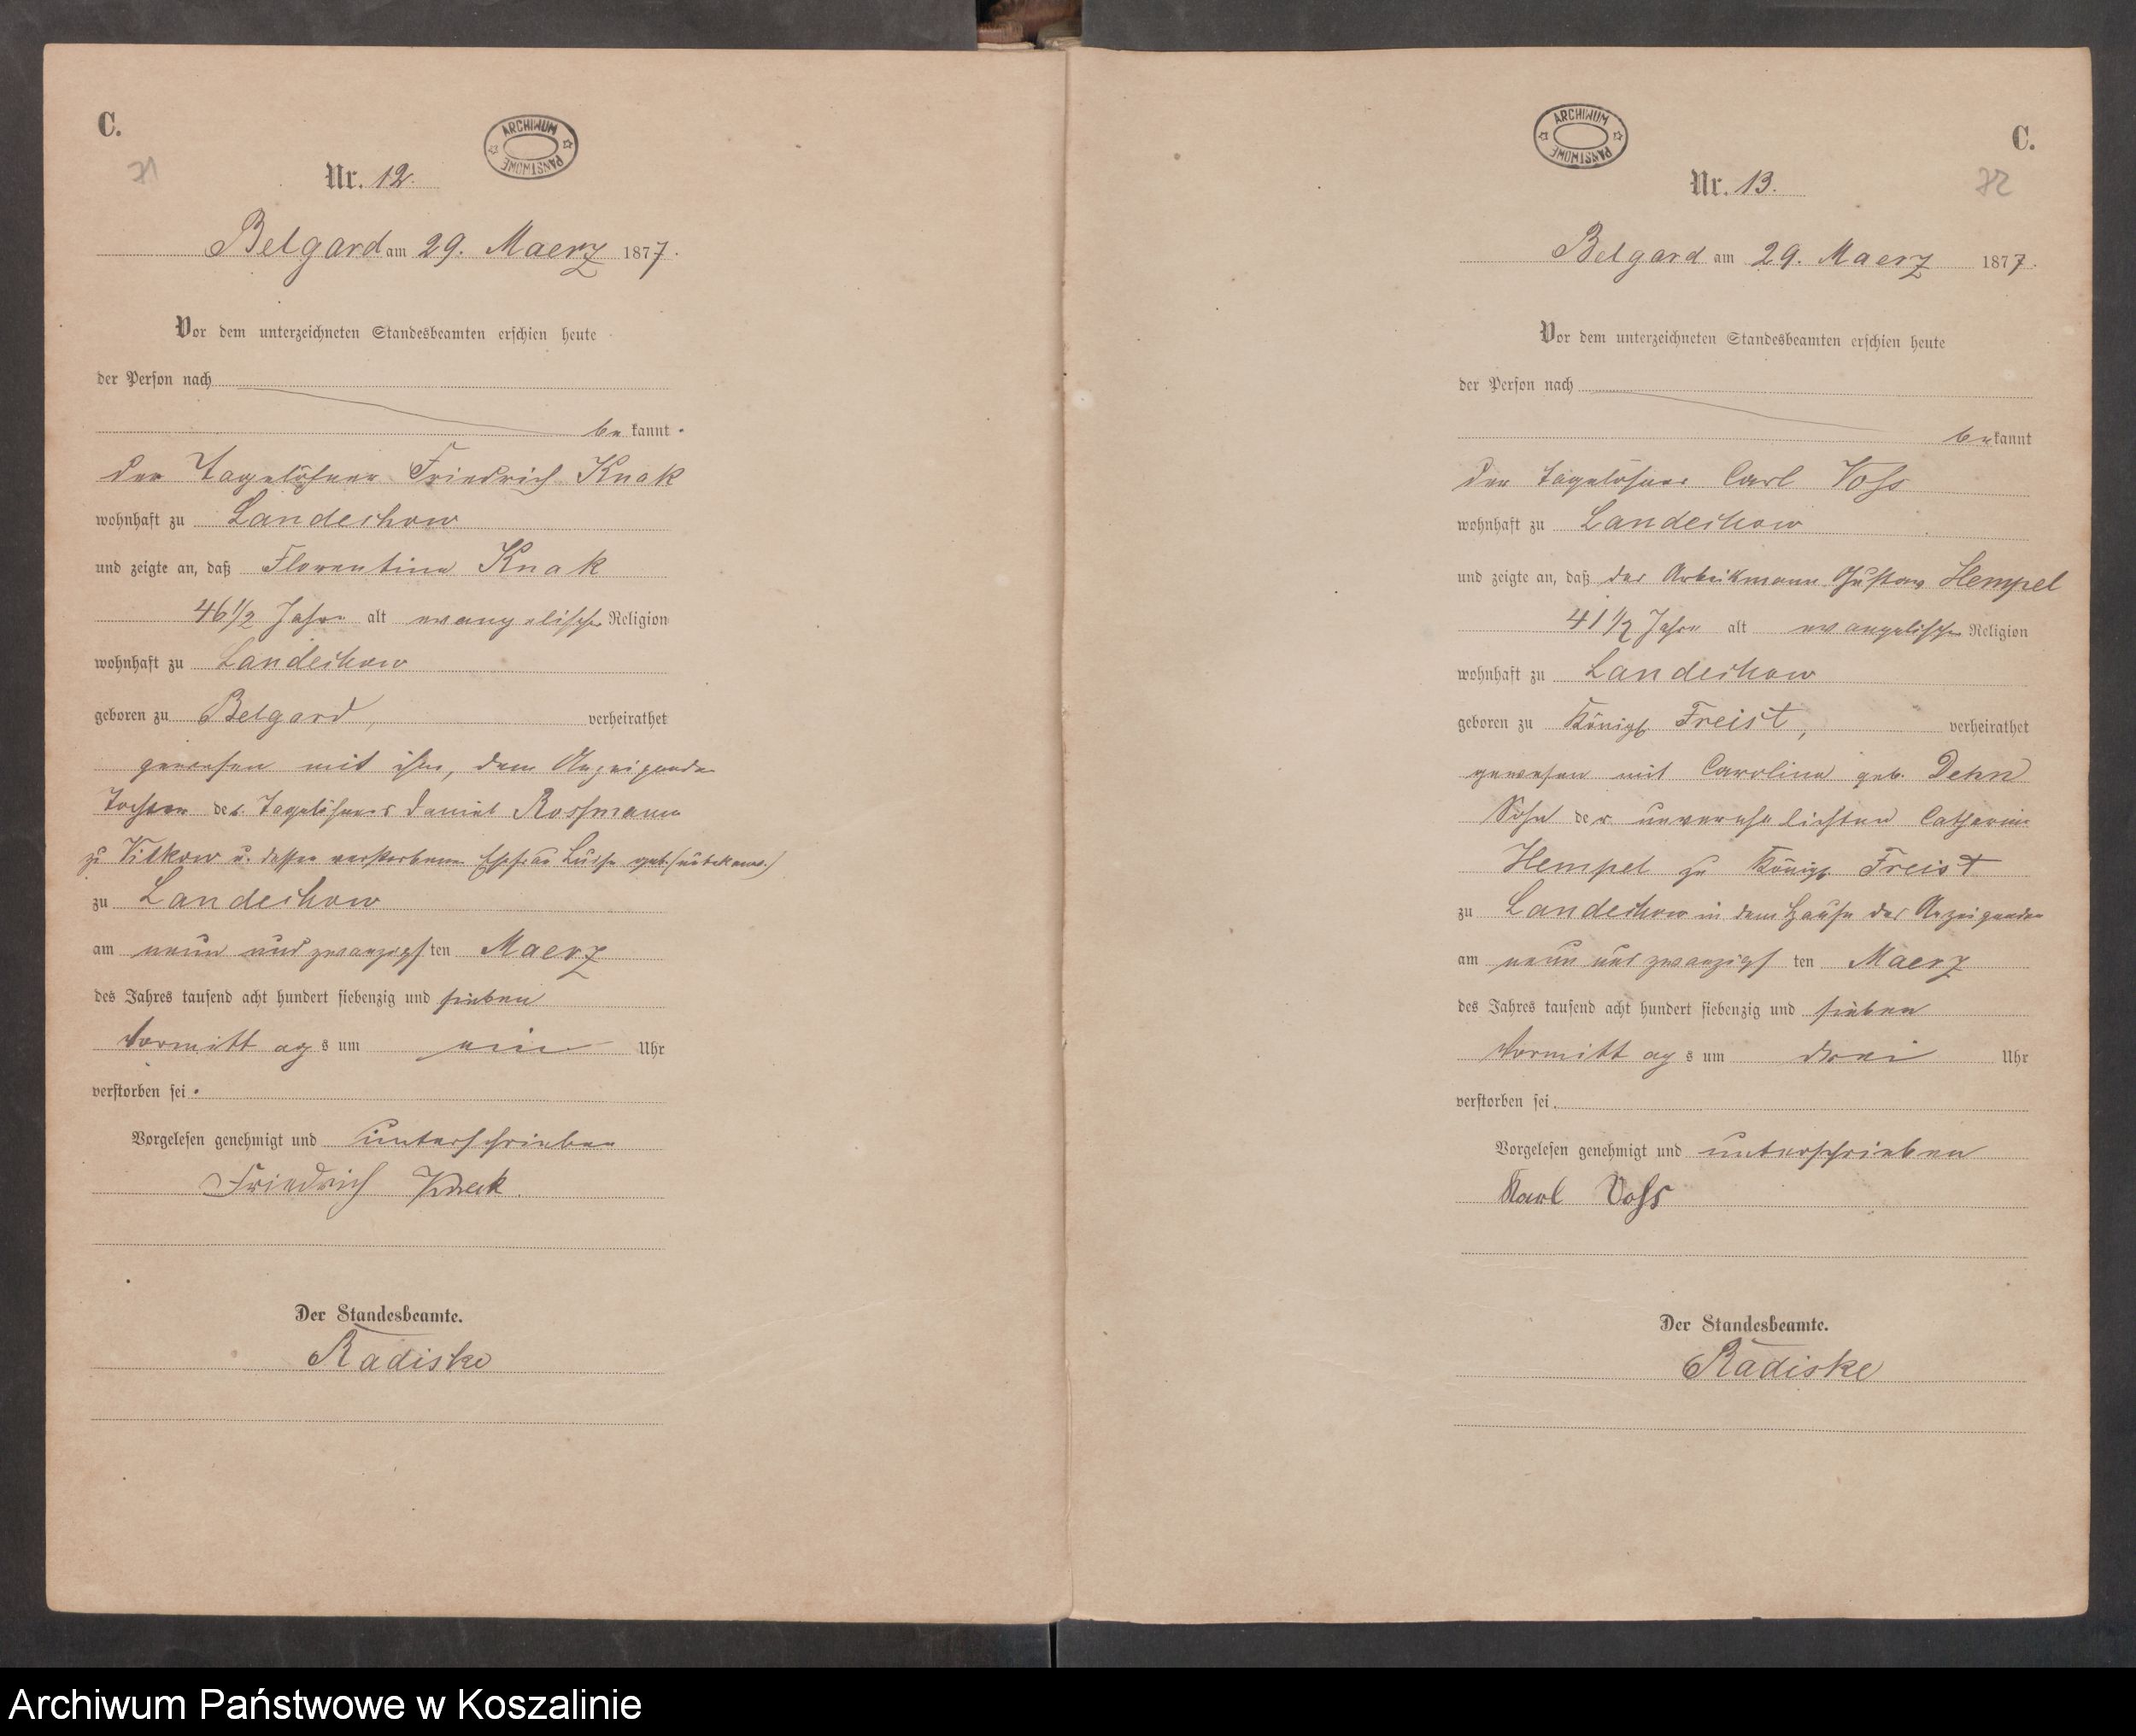 C.
71
ARCHIWUM PAŃSTWOWE
Nr. 12.
Belgard am 29. Maerz 1877.
Vor dem unterzeichneten Standesbeamten erschien heute
der Person nach
bekannt.
der Tagelöhner Friedrich Knak
wohnhaft zu Landechow
und zeigte an, daß Florentine Knak
46 1/2 Jahre alt evangelischer Religion
wohnhaft zu Landechow
geboren zu Belgard, verheirathet
gewesen mit ihm, dem Anzeigenden
Tochter des Tagelöhners Daniel Rossmann
zu Vilkow u. dessen verstorbenen Ehefrau Luise geb. (unbekannt)
zu Landechow
am neun und zwanzigsten Maerz
des Jahres tausend acht hundert siebenzig und sieben
Vormittags um ein Uhr
verstorben sei.
Vorgelesen genehmigt und unterschrieben
Friedrich Knak.
Der Standesbeamte.
Radiske
ARCHIWUM PAŃSTWOWE
C.
72
Nr. 13.
Belgard am 29. Maerz 1877.
Vor dem unterzeichneten Standesbeamten erschien heute
der Person nach
bekannt
der Tagelöhner Carl Voss
wohnhaft zu Landechow
und zeigte an, daß der Arbeitsmann Gustav Hempel
41 1/2 Jahre alt evangelischer Religion
wohnhaft zu Landechow
geboren zu Königl. Freist, verheirathet
gewesen mit Caroline geb. Dehn
Sohn der unverehelichten Catharine
Hempel zu Königl. Freist
zu Landechow in dem Hause des Anzeigenden
am neun und zwanzigsten Maerz
des Jahres tausend acht hundert siebenzig und sieben
Vormittags um drei Uhr
verstorben sei.
Vorgelesen genehmigt und unterschrieben
Karl Voss
Der Standesbeamte.
Radiske
Archiwum Państwowe w Koszalinie